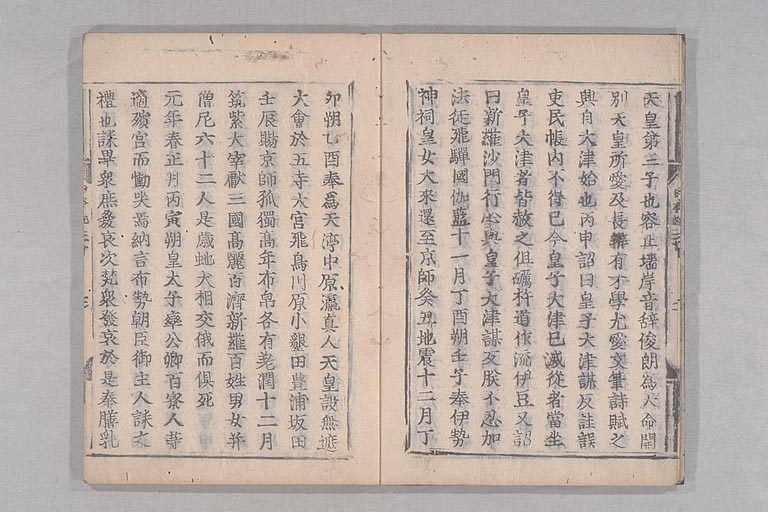 天皇第三子也容止墻岸音辭俊朗爲天命開
別天皇所愛及長辨有才學尤愛文筆詩賦之
興自大津始也丙申詔曰皇子大津謀反詿誤
吏民帳內不得已今皇子大津已滅從者當坐
皇子大津者皆赦之但礪杵道作流伊豆又詔
曰新羅沙門行心與皇子大津謀反朕不忍加
法徙飛驒國伽藍十一月丁酉朔壬子奉伊勢
神祠皇女大來還至京師癸丑地震十二月丁
卯朔乙酉奉爲天渟中原瀛真人天皇設無遮
大會於五寺大官飛鳥川原小墾田豊浦坂田
壬辰賜京師孤獨髙年布帛各有差潤十二月
筑紫大宰獻三國髙麗百濟新羅百姓男女并
僧尼六十二人是歳虵犬相交俄而俱死
元年春正月丙寅朔皇太子率公卿百寮人等
適殯宮而慟哭焉納言布勢朝臣御主人誄之
禮也誄畢衆庶發哀次梵衆發哀於是奉膳